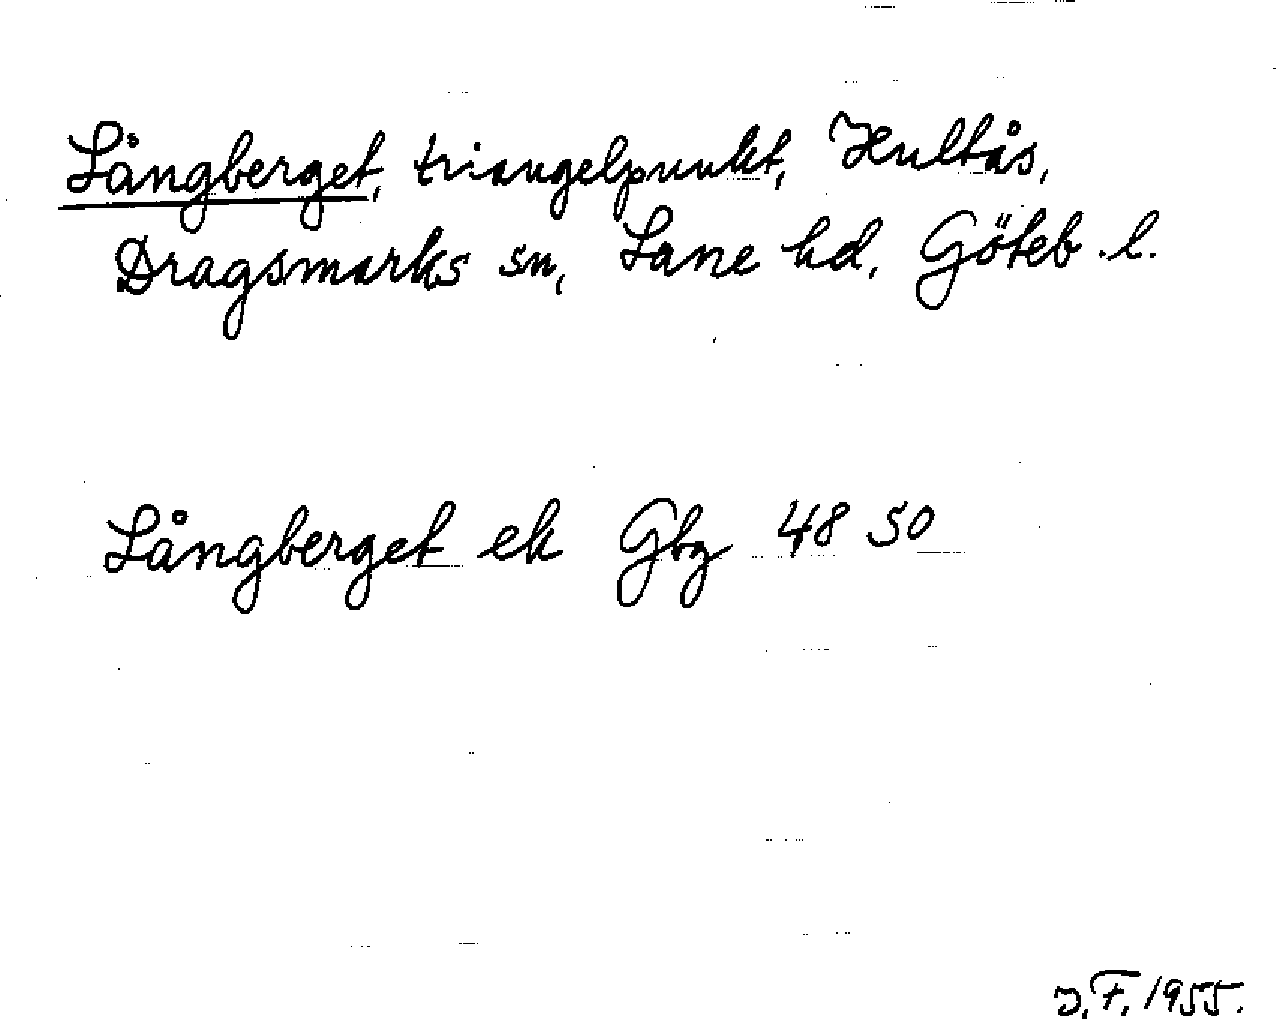 Långberget, triangelpunkt, Hultås,
Dragsmarks sn, Lane hd, Göteb. l.
Långberget ek Gbg 48 50
J. F. 1955.